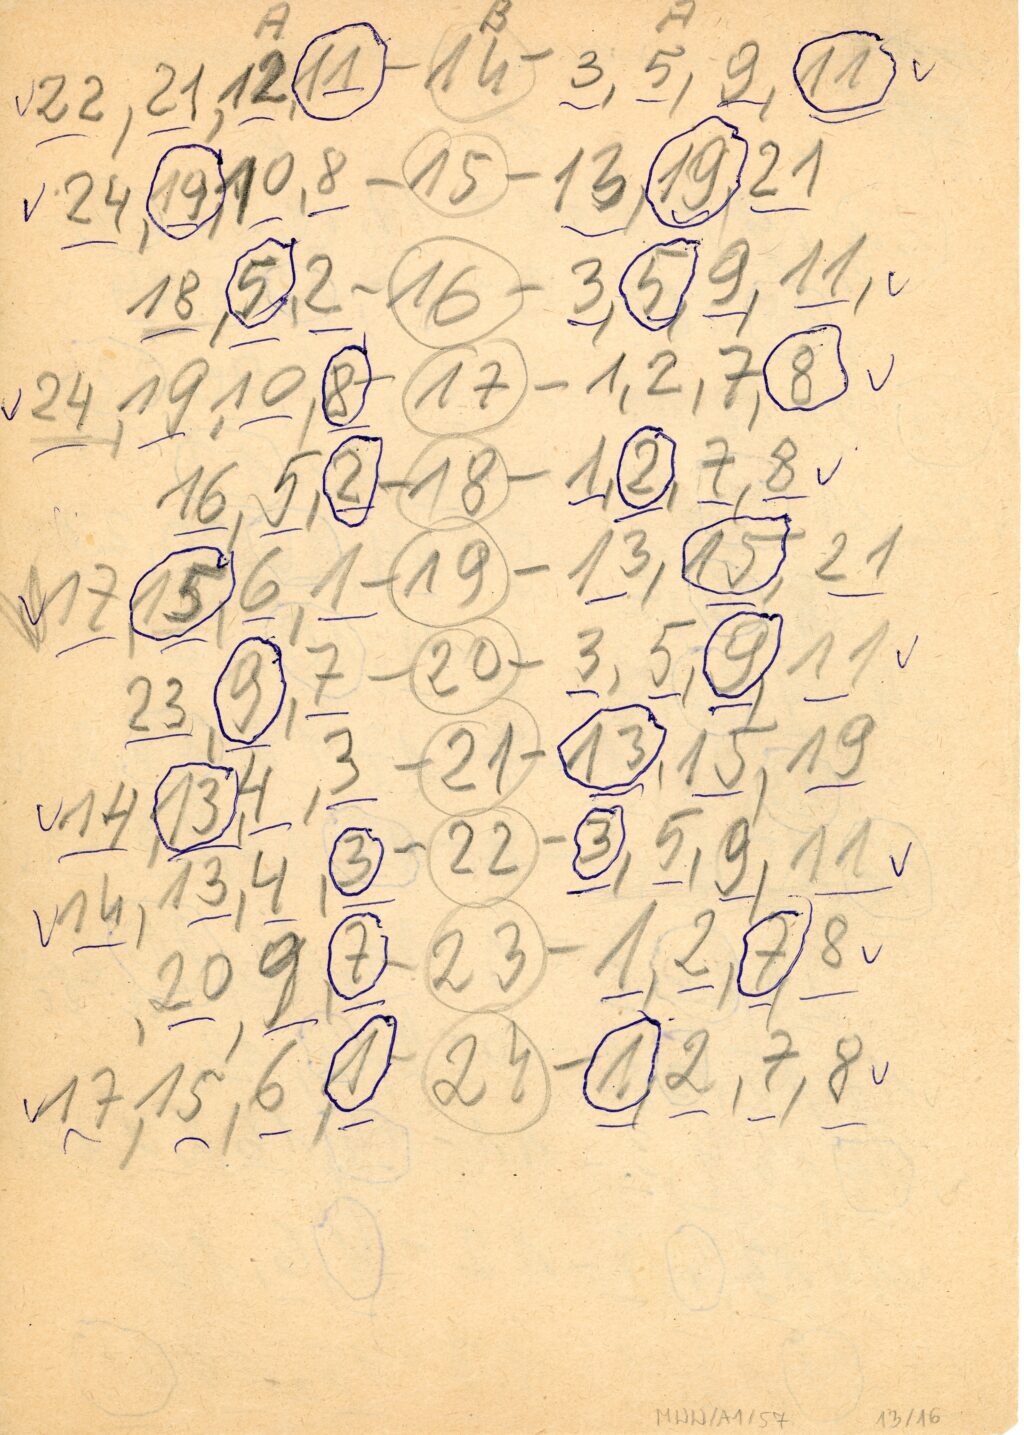 A B A
22, 21, 12, 11 - 14 - 3, 5, 9, 11
24, 19, 10, 8 - 15 - 13, 19, 21
18, 5, 2 - 16 - 3, 5, 9, 11,
24, 19, 10, 8 - 17 - 1, 2, 7, 8
16, 5, 2 - 18 - 1, 2, 7, 8
17, 15, 6, 1 - 19 - 13, 15, 21
23, 9, 7 - 20 - 3, 5, 9, 11
14, 13, 4, 3 - 21 - 13, 15, 19
14, 13, 4, 3 - 22 - 3, 5, 9, 11
, 20, 9, 7 - 23 - 1, 2, 7, 8
17, 15, 6, 1 - 24 - 1, 2, 7, 8
13/16